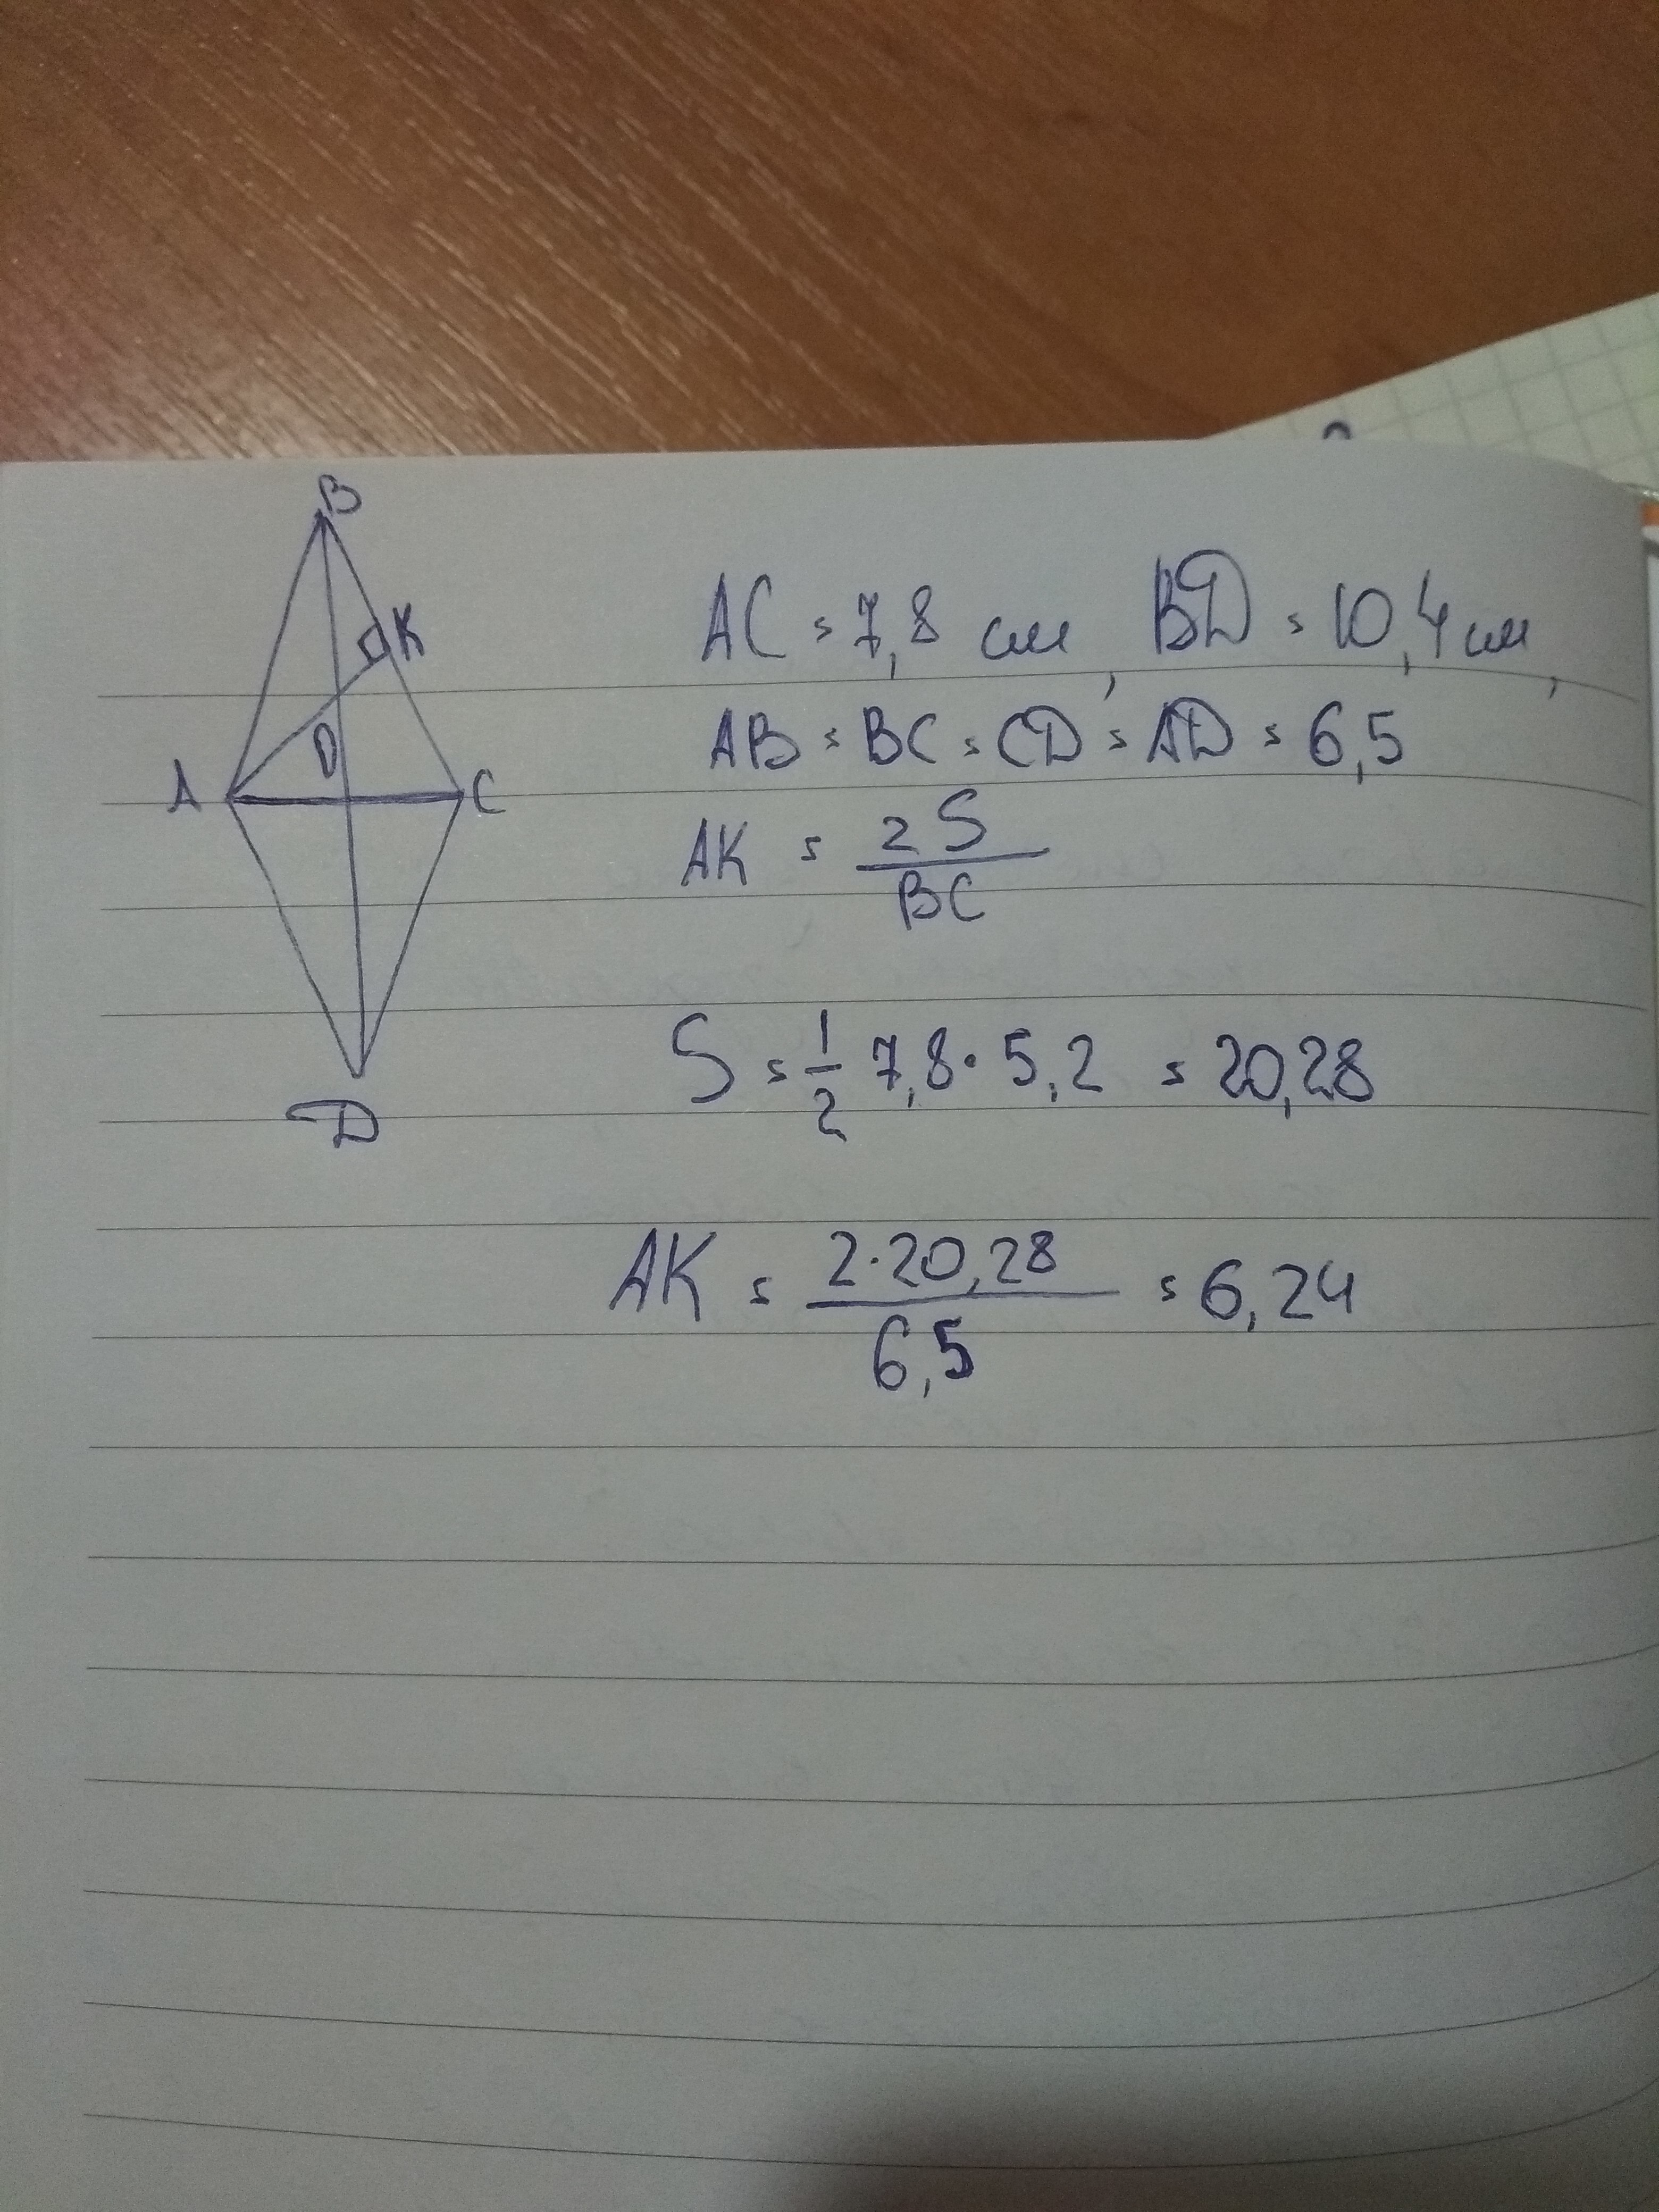 B
K
O
A
C
D
AC = 7,8 см, BD = 10,4 см,
AB = BC = CD = AD = 6,5
AK = 2S / BC
S = 1/2 7,8 · 5,2 = 20,28
AK = 2·20,28 / 6,5 = 6,24